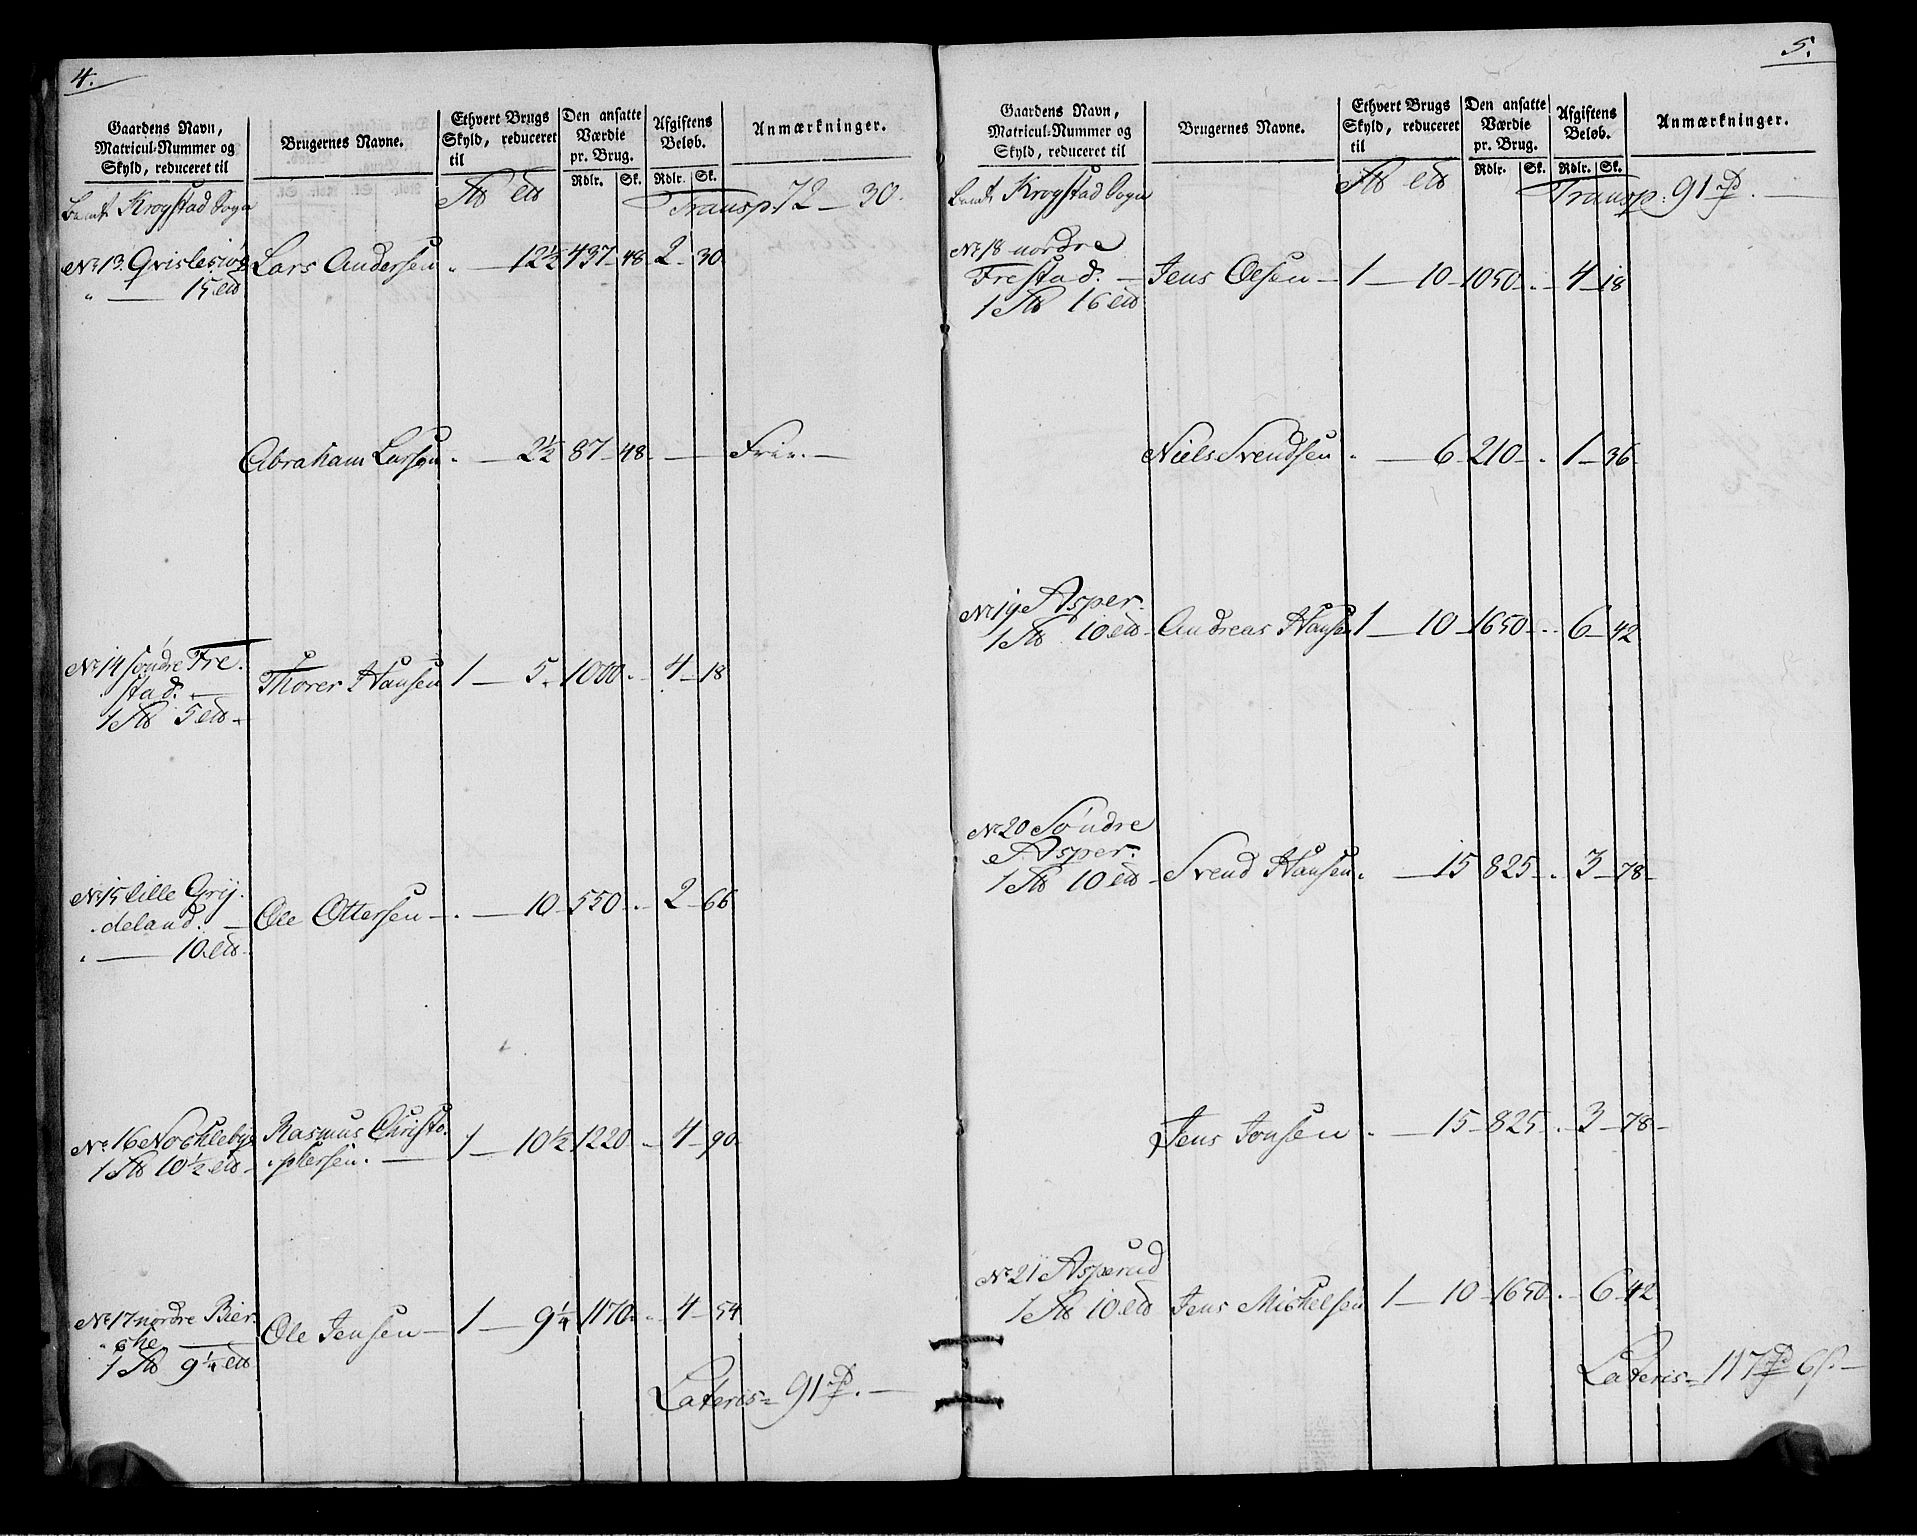 4.
Gaardens Navn, Matricul-Nummer og Skyld, reduceret til
Brugernes Navne.
Ethvert Brugs Skyld, reduceret til
Den ansatte Værdie pr. Brug.
Afgiftens Beløb.
Anmærkninger.
Rdlr. Sk. Rdlr. Sk.
Krogstad Sogn
Transp. 72 — 30.
No 13. Qvislesiøe Lars Andersen " — 12½ 437 — 48 2 — 30
" — 15
Abraham Larsen " — 2½ 87 — 48 — Frie. —
No 14 söndre Fre-
stad. — Thorer Hansen 1 — 5 1000 4 — 18
1 5
No 15 lille Gry-
deland. — Ole Ottersen — . — 10 550 2 — 66
" — 10
No 16 Nochleby Rasmus Christo-
1 10½ phersen. — 1 — 10½ 1220 4 — 90
No 17 nordre Bier-
che — Ole Jensen — 1 — 9¼ 1170 4 — 54
1 9¼
Lateris = 91 . —
5.
Gaardens Navn, Matricul-Nummer og Skyld, reduceret til
Brugernes Navne.
Ethvert Brugs Skyld, reduceret til
Den ansatte Værdie pr. Brug.
Afgiftens Beløb.
Anmærkninger.
Rdlr. Sk. Rdlr. Sk.
Krogstad Sogn
Transp. 91 . —
No 18 nordre
Frestad. — Jens Olsen — 1 — 10 1050 4 — 18
1 16
Niels Svendsen " — 6 210 1 — 36
No 19 Asper.
1 10 Andreas Hansen 1 — 10 1650 6 — 42
No 20 Söndre
Asper.
1 10 Svend Hansen . — 15 825 3 — 78
Jens Jonsen . — 15 825 3 — 78
No 21 Asperud
1 10 Jens Michelsen 1 — 10 1650 6 — 42
Lateris = 117 6